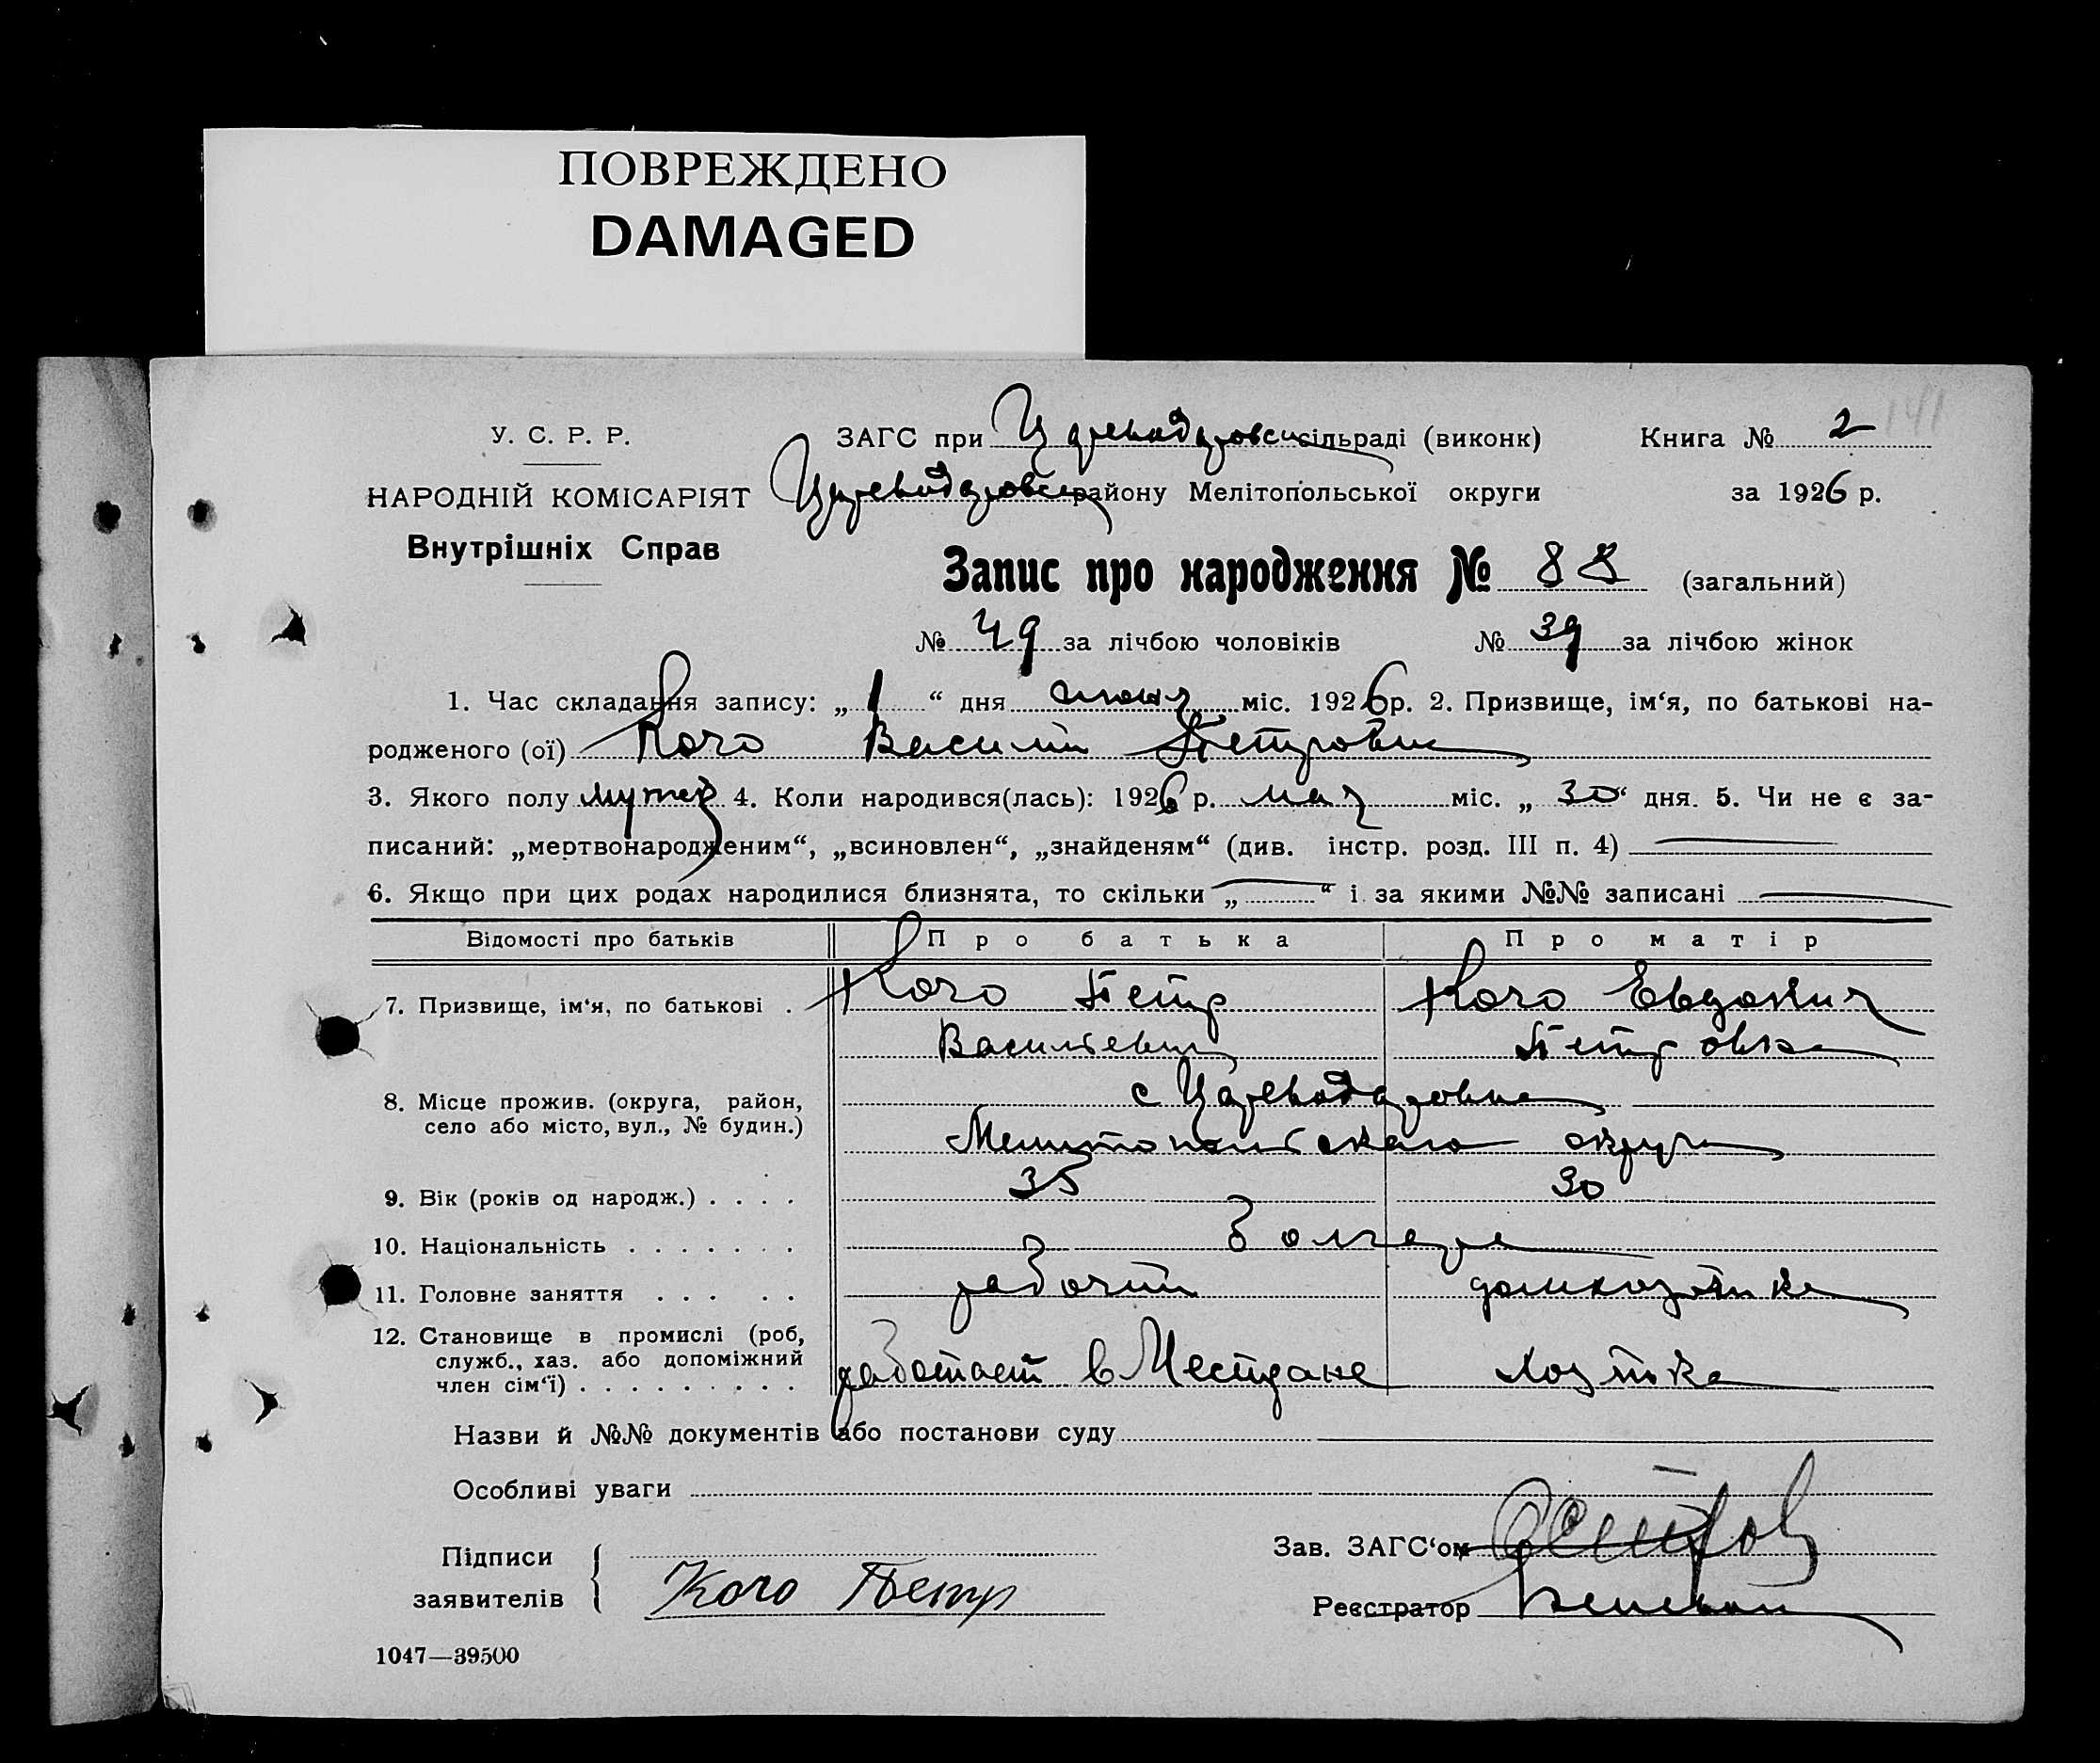 ПОВРЕЖДЕНО
DAMAGED
141
У. С. Р. Р.
НАРОДНІЙ КОМІСАРІЯТ
Внутрішніх Справ
ЗАГС при Цареводаровск сільраді (виконк)
Цареводаровск району Мелітопольської округи
Книга № 2
за 1926 р.
Запис про народження № 88 (загальний)
№ 49 за лічбою чоловіків № 39 за лічбою жінок
1. Час складання запису: „ 1 “ дня июня міс. 1926 р. 2. Призвище, ім‘я, по батькові на-
родженого (ої) Кочо Василий Петрович
3. Якого полу мужск 4. Коли народився(лась): 1926 р. мая міс. „ 30 “ дня. 5. Чи не є за-
писаний: „мертвонародженим“, „всиновлен“, „знайденям“ (див. інстр. розд. III п. 4)
6. Якщо при цих родах народилися близнята, то скільки „ “ і за якими №№ записані
Відомості про батьків Про батька Про матір
7. Призвище, ім‘я, по батькові . Кочо Петр Кочо Евдокия
Васильевич Петровна
8. Місце прожив. (округа, район,
село або місто, вул., № будин.)
с Цареводаровка
Мелитопольского округа
9. Вік (років од народж.) . . . . 35 30
10. Національність . . . . . . . Болгаре
11. Головне заняття . . . . . рабочий домхозяйка
12. Становище в промислі (роб,
служб., хаз. або допоміжний
член сім‘ї) . . . . . . . . . работает в хозяйка
Назви й №№ документів або постанови суду
Особливі уваги
Підписи
заявителів
Кочо Петр
Зав. ЗАГС‘ом
Реєстратор
1047—39500